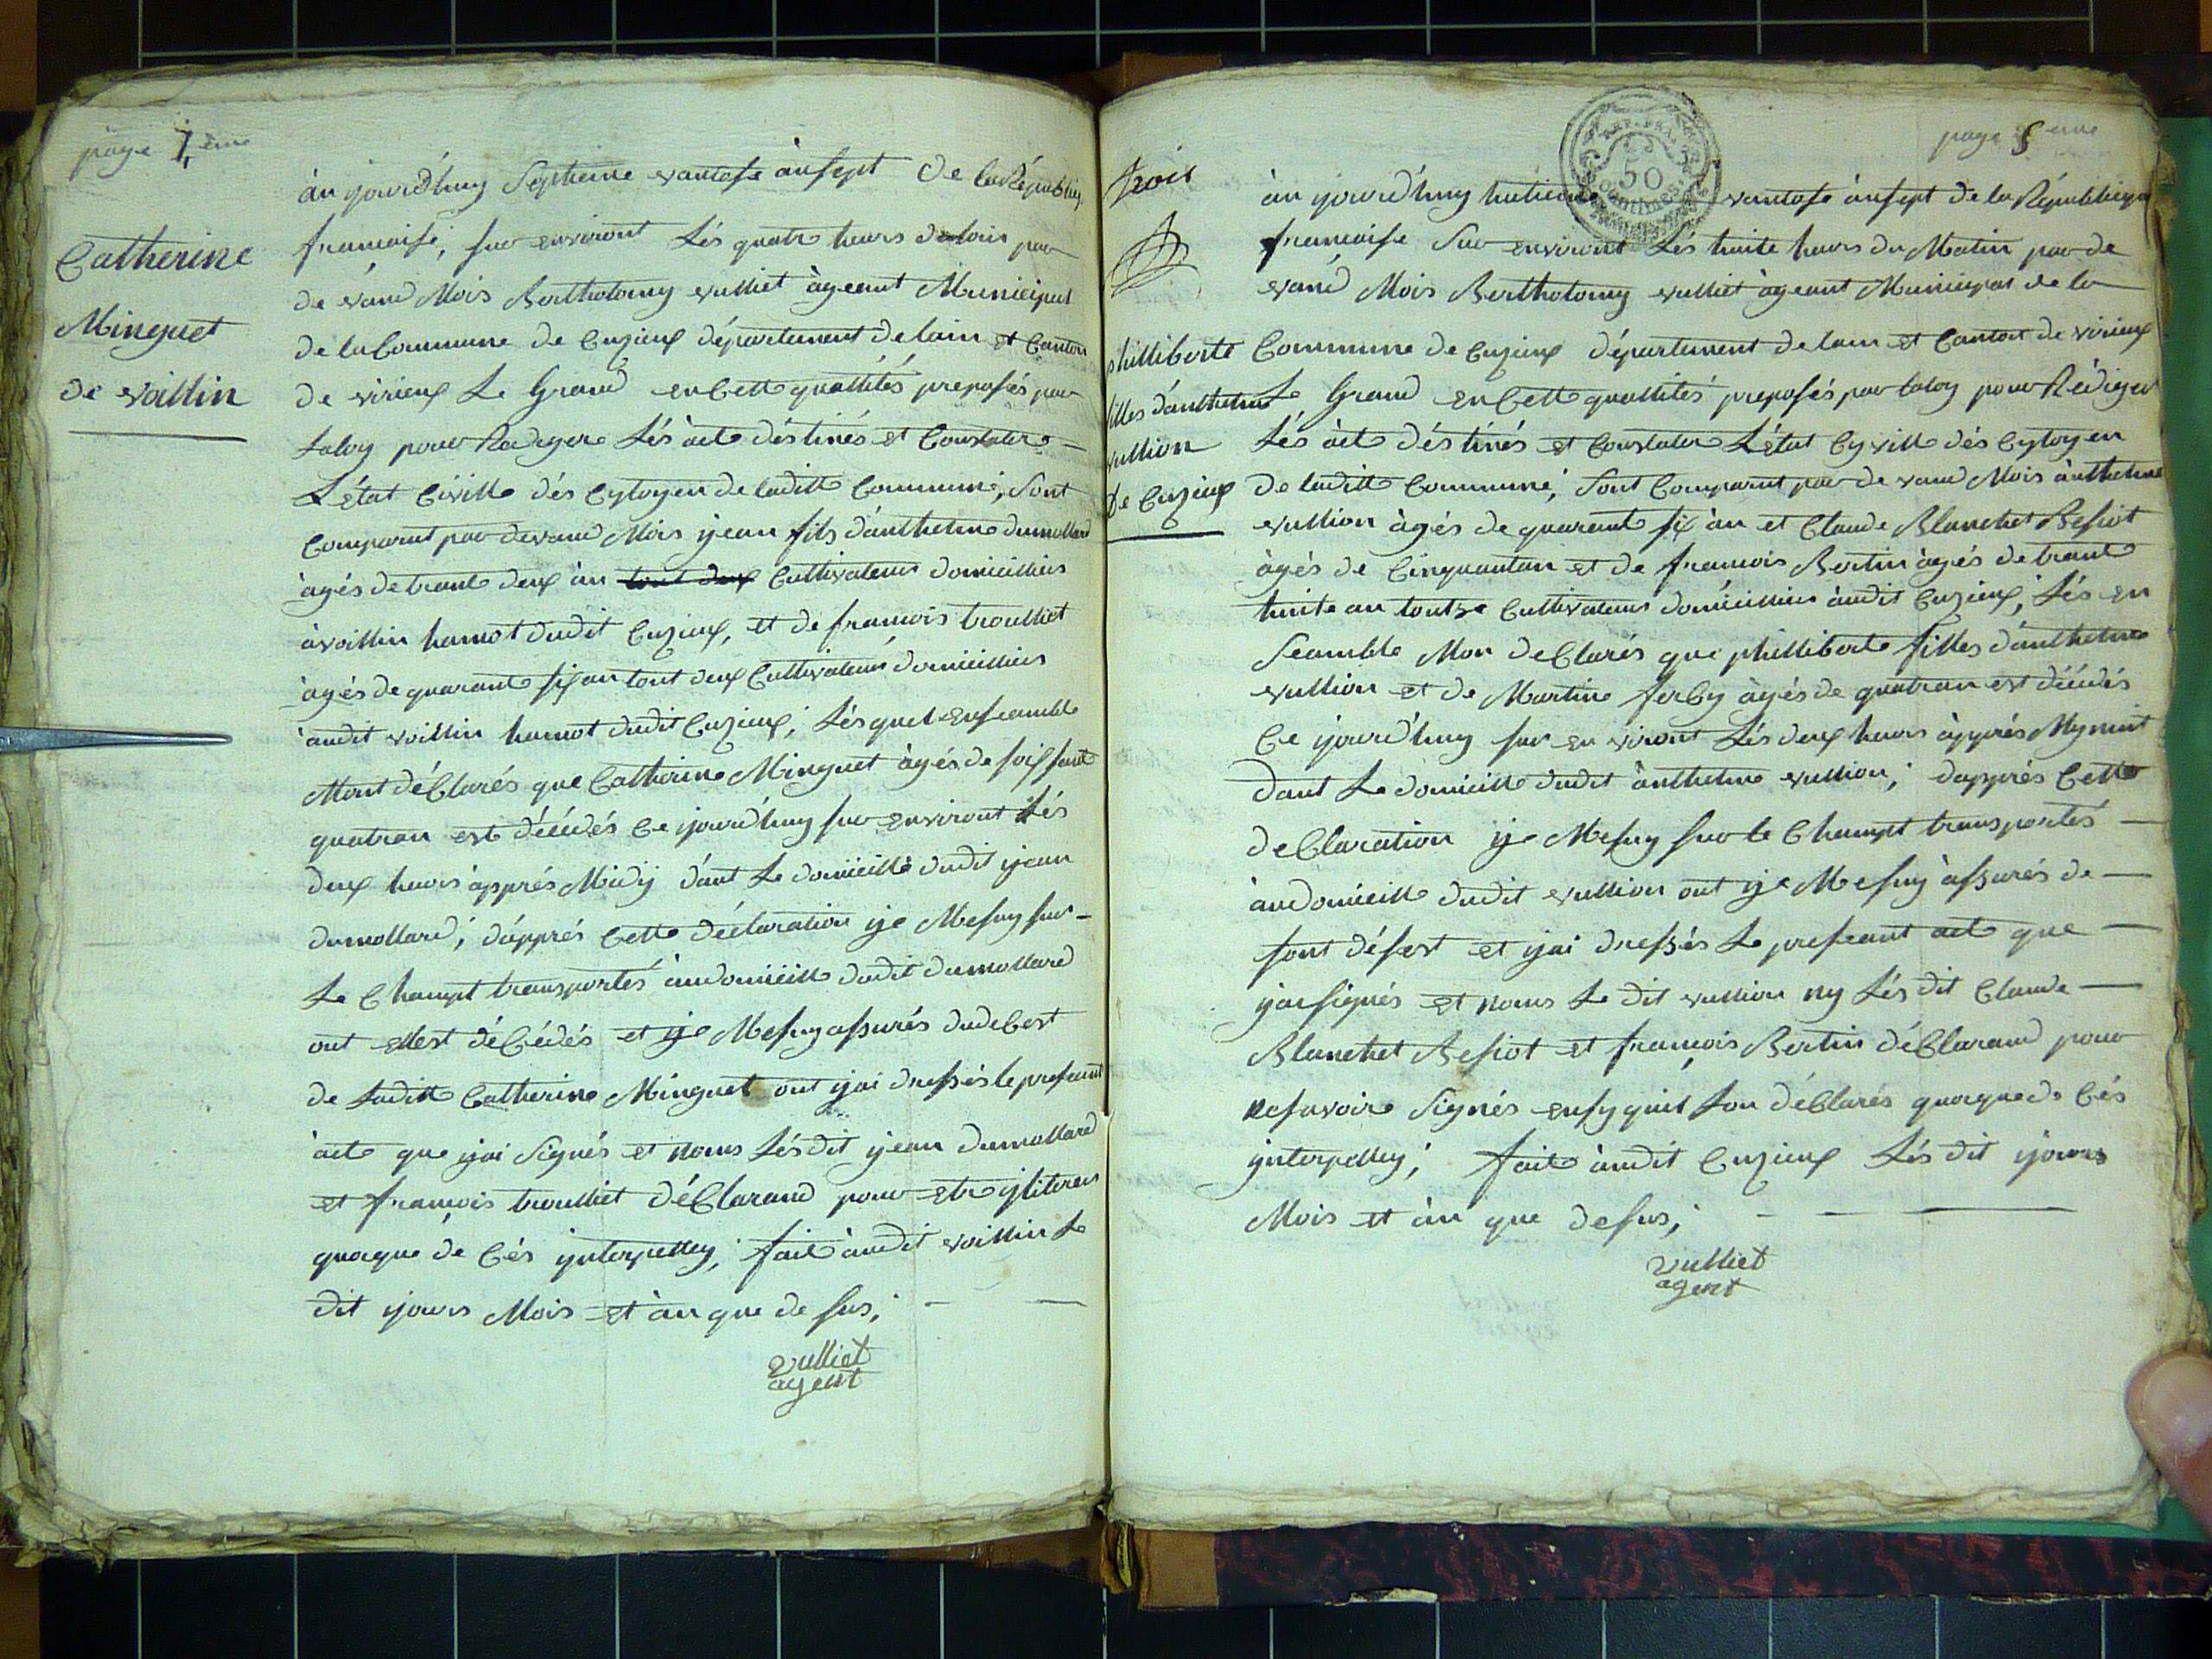 page 4 ème
Catherine
Minguet
de voillin
àu yjourd'huy Septieme vantose àn sept De la Républiq
francaise, sur environt Lés quatre heurs de loir par
de vand Mois Bertholomy vulliet àgeant Municipal
de la Commune de Cuzieux département de lain et Canton
de virieux Le Grand en Cette quallités preposés par
Laloy pour Redyere Lés àcte déstinés et Constater
L'état Civille dés Cytoyen de laditte Commune, Sont
Comparut par devand Mois yjean fils d'anthelme dumollard
àgés de trante deux àn tout deux Cultivateur domicilliés
àvoillin hamot dudit Cuzieux, et de francois troulliet
àgés de quarante six an tout deux Cultivateur domicilliés
audit voillin hamot dudit Cuzieux; Lés quel enseamble
Mont déClarés que Catherine Minguet àgés de soissante
quatran est décédés Ce yjourd'huy sur environt Lés
deux heurs àpprés Midÿ dant Le domicille dudit yjean
dumollard; d'apprés Cette déclaration yje Mesuy sur
Le Champt transportés àudomicille dudit dumollard
out ellest déCédés et yje Mesuy assurés dudeCest
de Laditte Catherine Minguet out yjai dressés le preseant
àcte que yjai Signés et nomis Lésdit yjean dumollard
et francois troulliet déClarand pour etre yliteres
quoique de Cés ynterpelley; fait àudit voillin Le
dit yjours Mois et àn que de sus;
vulliet
agent
page 5 eme
trois
REP. FRA.
50
Centimes
phillibarte
filles d'anthelme
vullion
De Cuzieux
àu yjourd'huy huitieme vantose àn sept de la Républiqu
francaise sur environt Lés huite heurs du Matin par de
vand Mois Bertholomy vulliet àgeant Municipas de la
Commune de Cuzieux département de lain et Canton de virieux
Le Grand en Cette quallités preposés par laloy pour Rédiger
Lés àcte déstinés et Constater L'état Cyville dés Cytoyen
de laditte Commune; Sont Comparut par de vand Mois ànthelme
vullion àgés de quarante six àn et Claude Blanchet Besiot
àgés de Cinquantan et de francois Bertin àgés de trante
huite an toutre Cultivateur domicilliés àudit Cuzieux, Lés en
Seamble Mon deClarés que phillibarte filles d'anthelme
vullion et de Martine ferby àgés de quatran est décédés
Ce yjourd'huy sur en viront Lés deux heurs àpprés Mynuit
dant Le domicille dudit ànthelme vullion; dapprés Cette
deClaration yje Mesuy sur le Champt transportés
àudomicille dudit vullion out yje Mesuy àssurés de
sont désest et yjai dressés Le preseant acte que
yjai signés et nomis Le dit vullion ny Lés dit Claude
Blanchet Besiot et francois Bertin déClarand pour
nesavoire Signés ensy quil Lon déClarés quoique de Cés
ynterpelley; fait àudit Cuzieux Lés dit yjours
Mois et àn que desus;
vulliet
agent